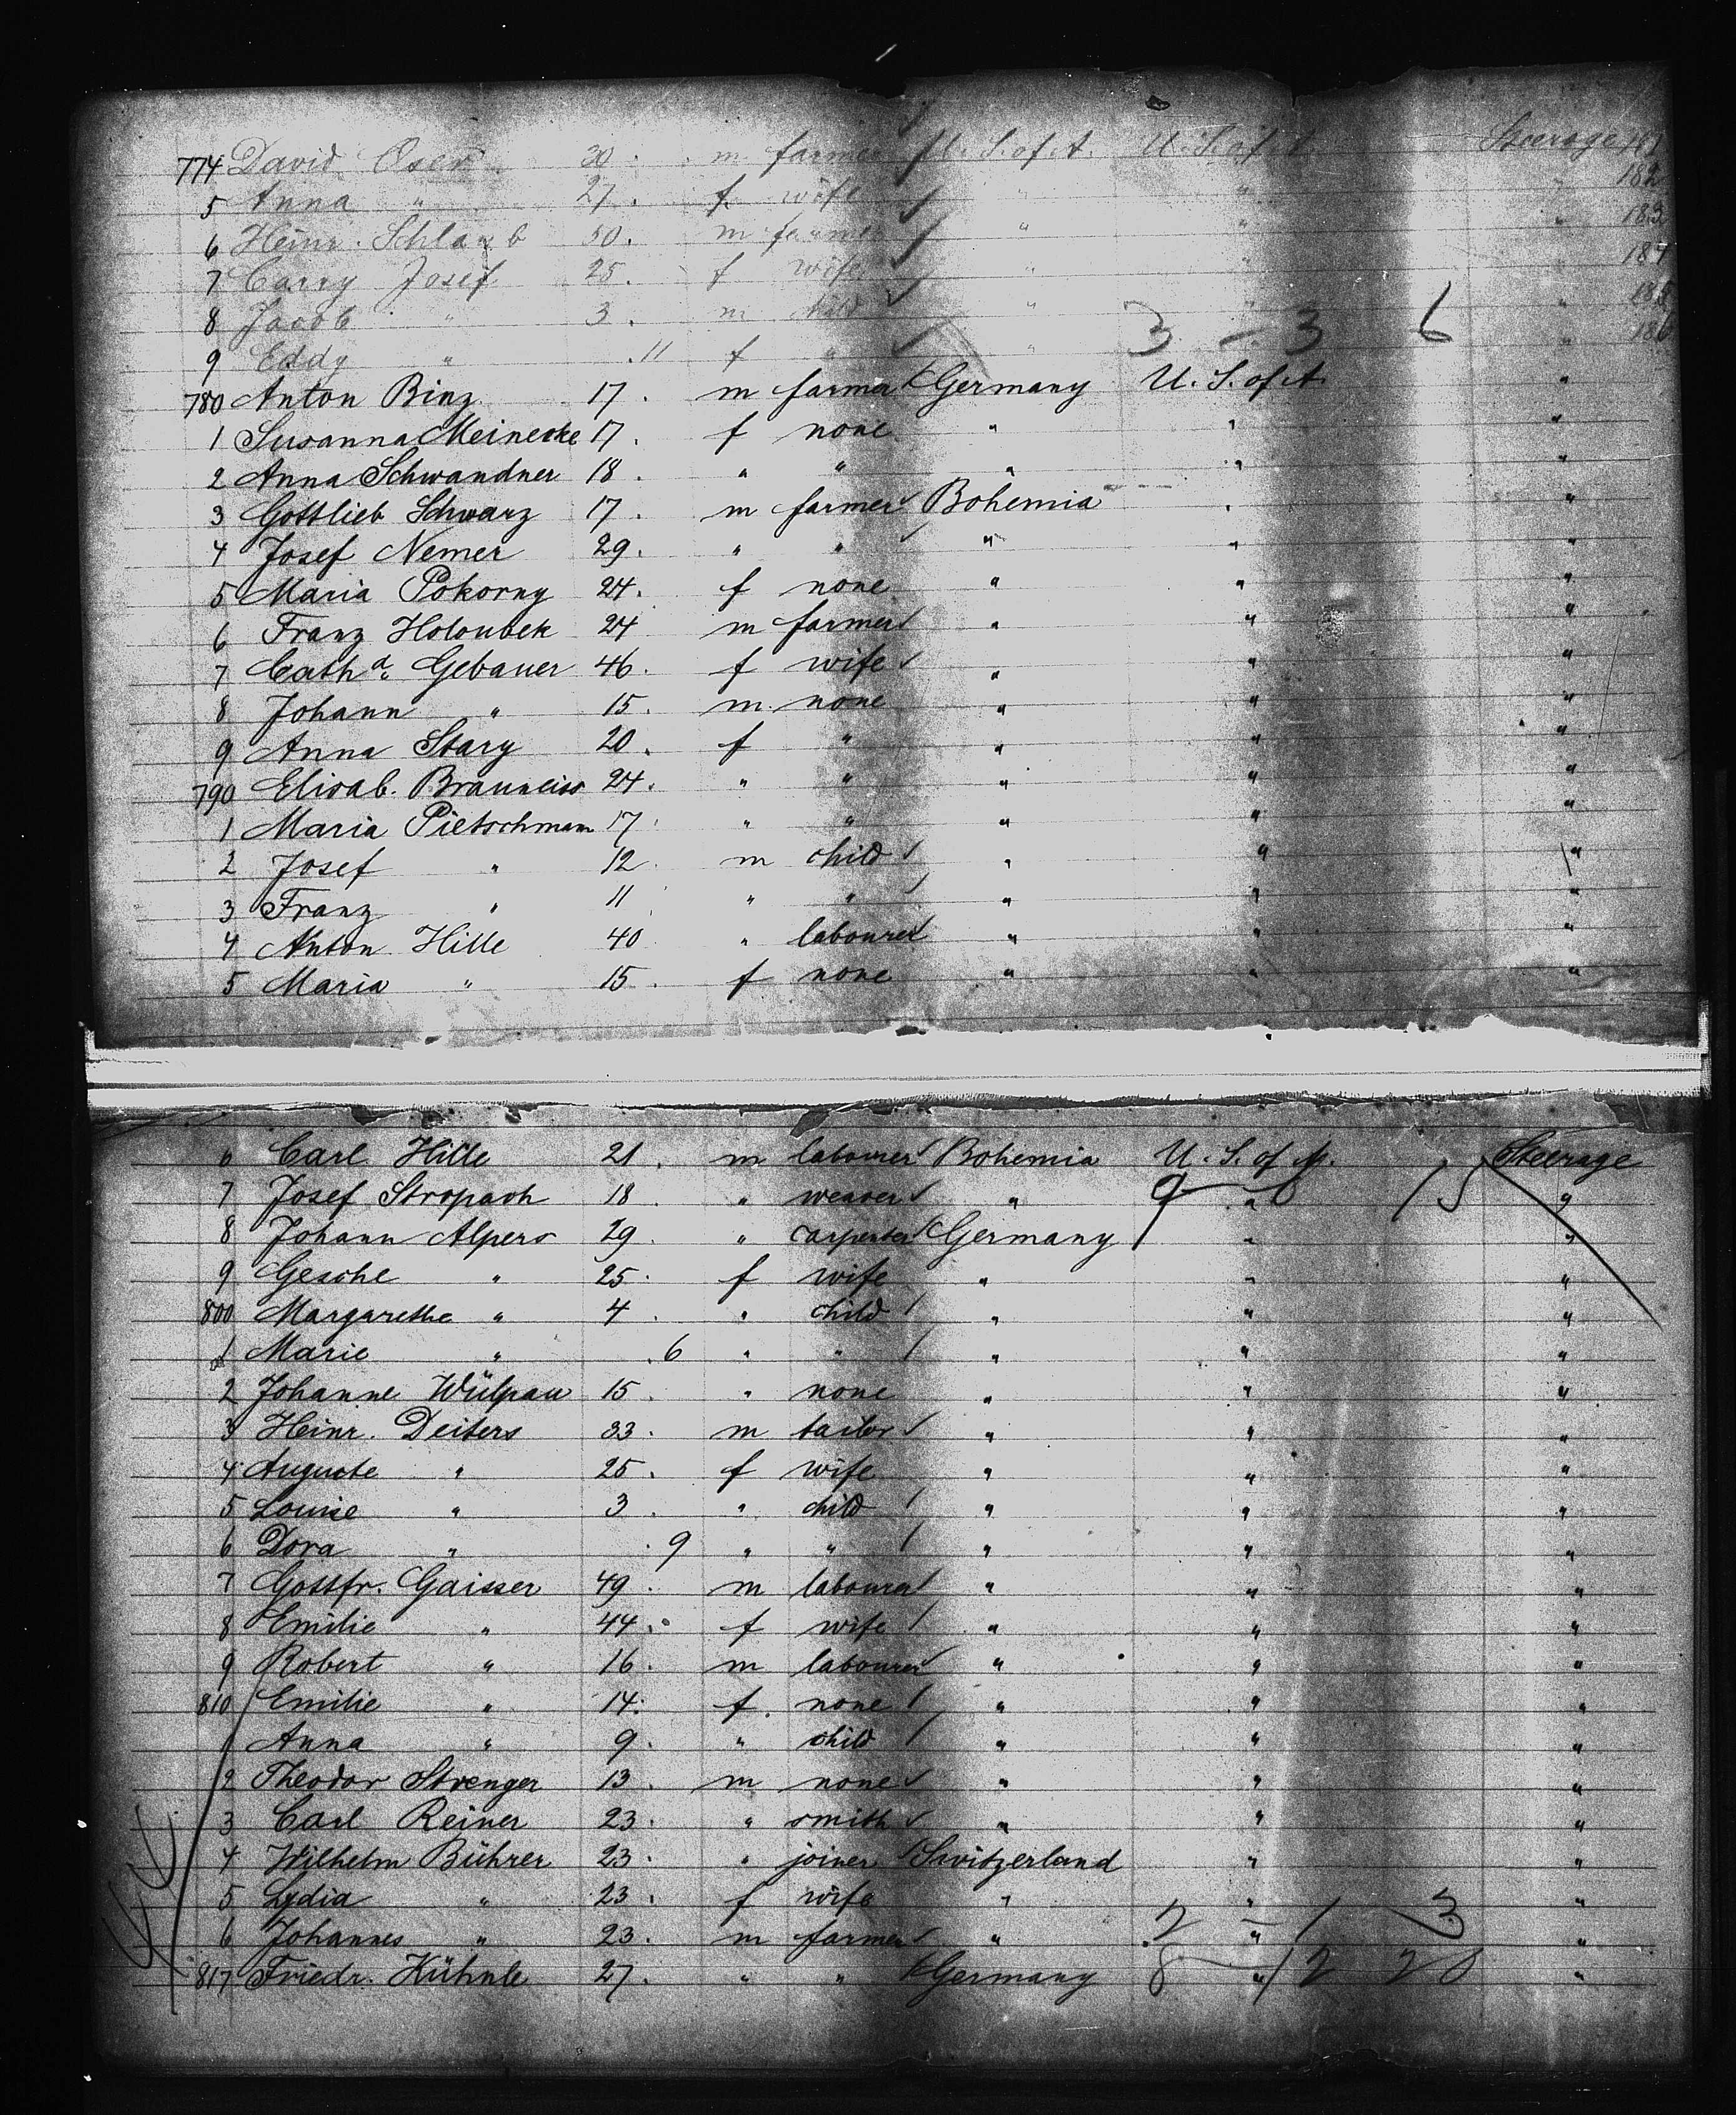 774 David Oser 30. m farmer U. S. of A. U. S. of A. Steerage 181
5 Anna " 27. f wife " " " 182
6 Heinr. Schlaub 50. m farmer " " " 183
7 Carry Josef 25. f wife " " " 184
8 Jacob " 3. m child " " " 185
9 Eddy " .11 f " " 3 - 3 6 " 186
780 Anton Binz 17. m farmer Germany U. S. of A. "
1 Susanna Meinecke 17. f none " " "
2 Anna Schwandner 18. " " " " "
3 Gottlieb Schwarz 17. m farmer Bohemia " "
4 Josef Nemer 29. " " " " "
5 Maria Pokorny 24. f none " " "
6 Franz Holoubek 24 m farmer " " "
7 Catha. Gebauer 46. f wife " " "
8 Johann " 15. m none " " "
9 Anna Stary 20. f " " " "
790 Elisab. Brauneiss 24. " " " " "
1 Maria Pietschmann 17. " " " " "
2 Josef " 12. m child " " "
3 Franz " 11 " " " " "
4 Anton Hille 40 " labourer " " "
5 Maria " 15. f none " " "
6 Carl Hille 21. m labourer Bohemia U. S. of A. Steerage
7 Josef Stropach 18 " weaver " 9 " 6 15 "
8 Johann Alpers 29. " carpenter Germany " "
9 Gesche " 25. f wife " " "
800 Margarethe " 4. " child " " "
1 Marie " .6 " " " " "
2 Johanne Wülpau 15. " none " " "
3 Heinr. Deiters 33. m tailor " " "
4 Auguste " 25. f wife " " "
5 Louise " 3. " child " " "
6 Dora " .9 " " " " "
7 Gottfr. Gaisser 49. m labourer " " "
8 Emilie " 44. f wife " " "
9 Robert " 16. m labourer " " "
810 Emilie " 14. f. none " " "
1 Anna " 9. " child " " "
2 Theodor Strenger 13. m none " " "
3 Carl Reiner 23. " smith " " "
4 Wilhelm Bührer 23. " joiner Switzerland " "
5 Lydia " 23. f wife " " "
6 Johannes " 23. m farmer " 2 - 1 3 "
817 Friedr. Kühnle 27. " " Germany 8 " 12 20 "